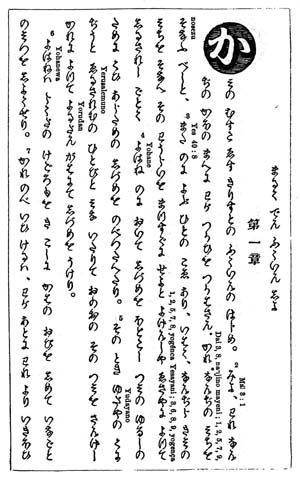 まるく でん ふくいんしよ
第一章
か
その むすこ ゑす きりすとの ふくいんの はじめ。 2 みよ、われ なん
Mã 3:1
Dai 3, 8, nanjino mayani; 1, 2, 5, 7, 9,
ぢの かほの まへに わが つかひを つかはさん。かれ なんぢの みちを
noezu
そなふ べしと、 3
Yes 40:8
のに よぶ ひとの こゑ あり、いはく、なんぢら きみの
みちを そなへ その
せよと よげんしや ゑさやに よりて
1, 2, 5, 7, 8, yogenca Yesayani; 3, 6, 8, 9, yogença
しるされし ごとく、 4 よはね のに おいて しづめを ほどこし つみの ゆるしの
Yohane
ために くひあらための しづめを のべつたへたり。 5 その とき ゆだやの くに
Yudayano
ぢうと ゑるされむの ひとびと みな いたりて おのおの その つみを さんげし
Yerusalemuno
かれに よりて よるだん がはにて しづめを うけり。
Yorudan
6 よはねは らくだの けごろもを き こしに かはの おびを しめて いなごと
Yohanewa
のみつを しよくせり。 7 かれ のべ いひけるは、わが あとより われより いきほひ